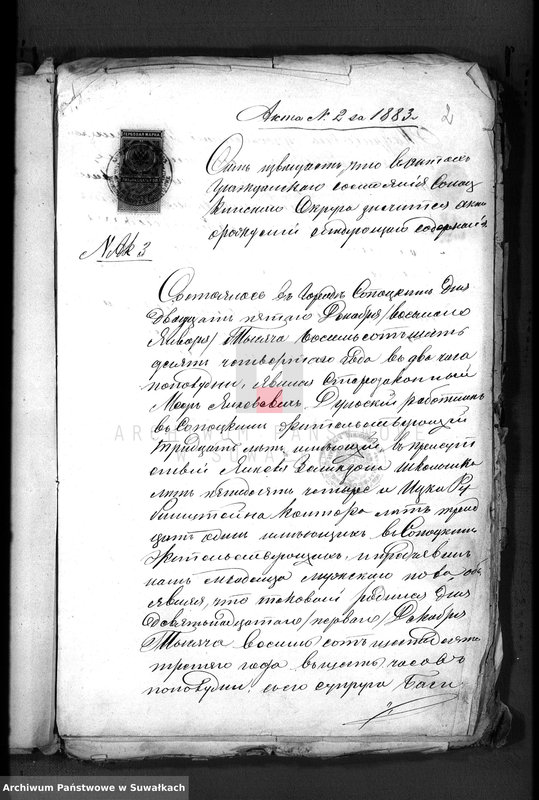 Акта №. 2 за 1883.
2
ГЕРБОВАЯ МАРКА
Симъ извѣщаетъ, что въ книгахъ
Гражданскаго состоянія Сопоц
кинскаго Округа значится актъ
слѣдующаго содержанія.
№ Ak 3
Состоялось въ Городѣ Сопоцкинѣ Дня
Двадцать пятаго Декабря /восьмаго
Января/ Тысяча восемьсотъ шесть
десятъ четвертаго Года въ два часа
пополудни, явился Старозаконный
Дульскій работникъ
въ Сопоцкинѣ жительствующій
тридцать лѣтъ имѣющій, въ присут
ствіи Янкеля школьника
лѣтъ пятьдесятъ четыре и Ицки Ру
бинштейна кантора лѣтъ трид
цать одинъ имѣющихъ въ Сопоцкинѣ
жительствующихъ, и предъявилъ
намъ младенца мужскаго пола объ
явилъ, что таковой родился Дня
Девятнадцатаго /перваго/ Декабря
Тысяча восемь сотъ шестьдесятъ
третьяго года въ шесть часовъ
пополудни отъ его супруга
ARCHIWUM PAŃSTWOWE
W SUWAŁKACH
Archiwum Państwowe w Suwałkach